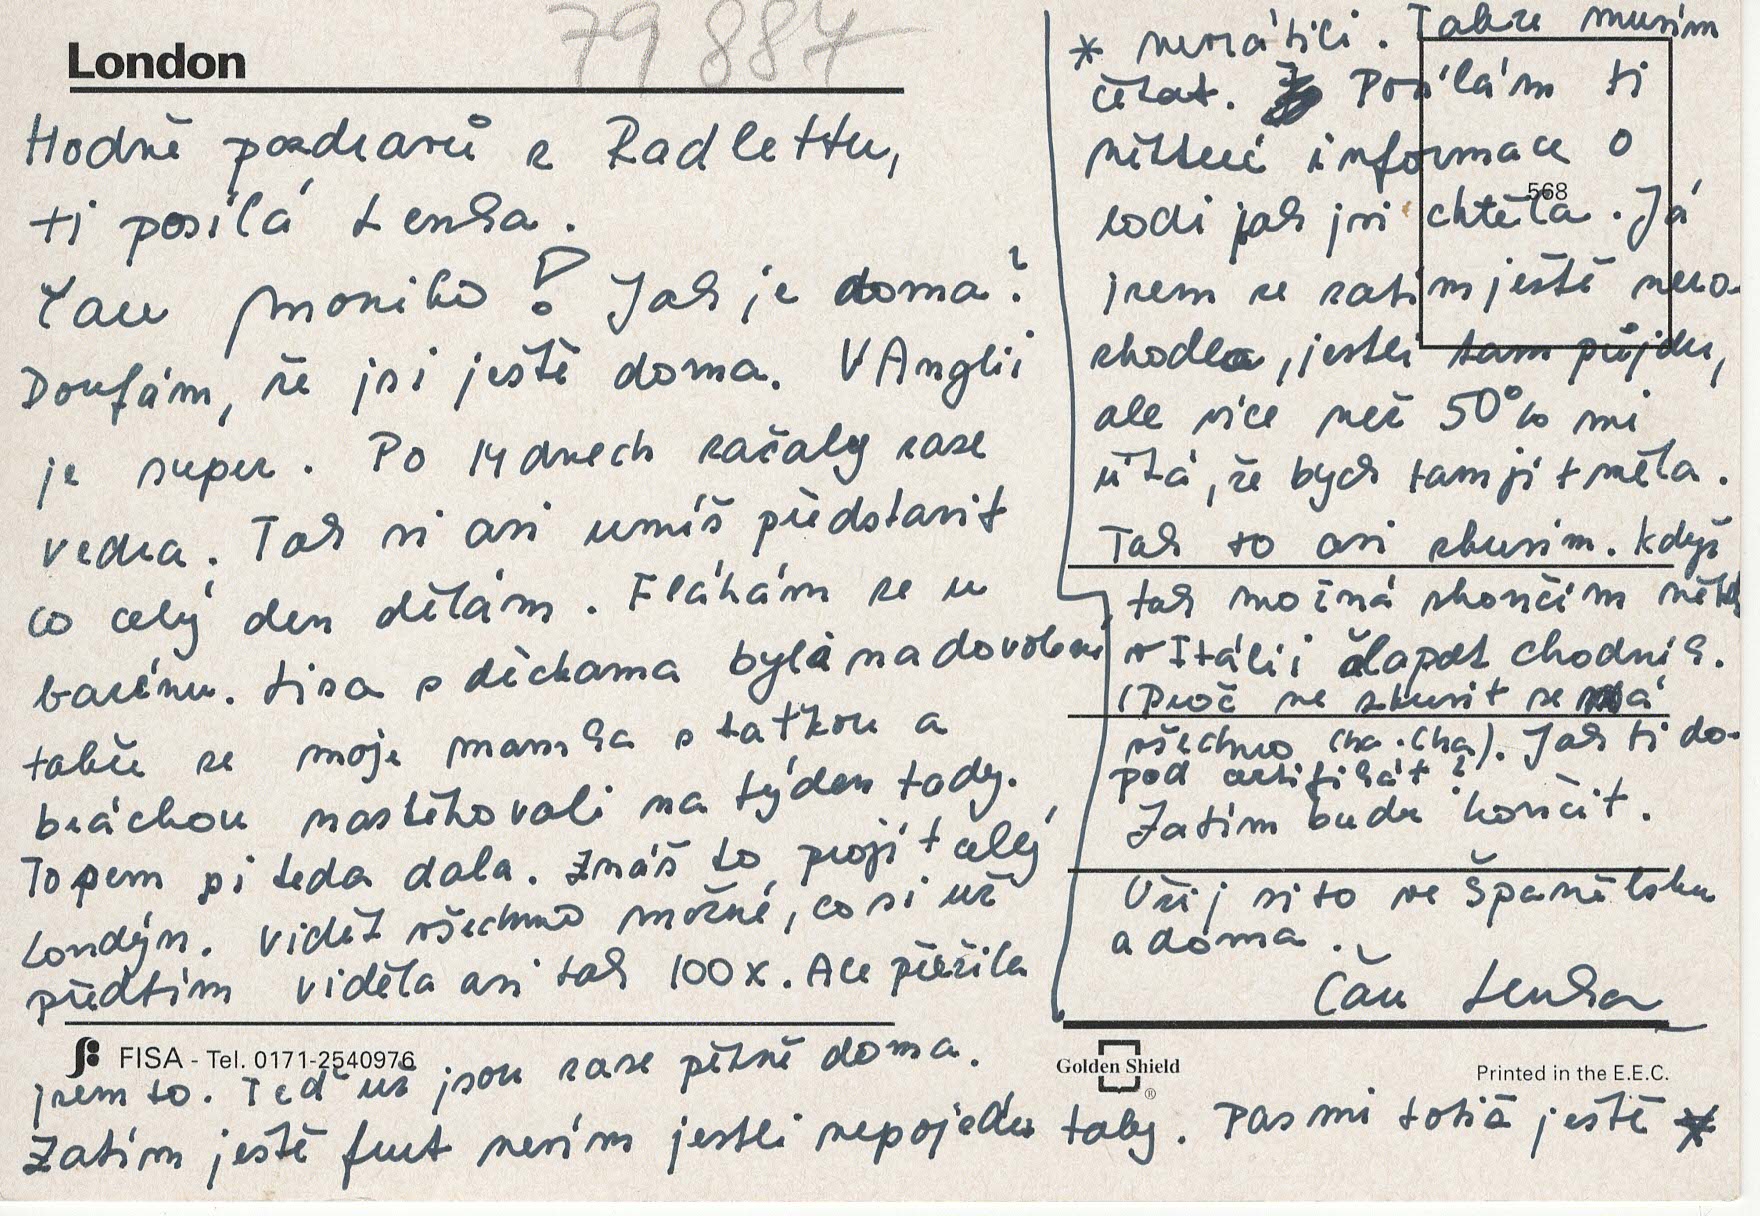 79 887
London
Hodně pozdravů z Radlettu,
ti posílá Lenka.
Čau Moniko! Jak je doma?
Doufám, že jsi ještě doma. V Anglii
je super. Po 14 dnech začaly zase
vedra. Tak si asi umíš představit
co celý den dělám. Flákám se u
bazénu. Lisa s děckama byla na dovolené
takže se moje mamka s taťkou a
bráchou nastěhovali na týden tady.
To jsem si teda dala. Znáš to, projít celý
Londýn. Vidět všechno možné, co si už
předtím viděla asi tak 100x. Ale přežila
FISA - Tel. 0171-2540976
jsem to. Teď už jsou zase pěkně doma.
Zatím ještě furt nevím jestli nepojedu taky. Pas mi totiž ještě *
* nevrátili. Takže musím
čekat. Posílám ti
některé informace o
lodi jak jsi chtěla. Já
568
jsem se zatím ještě nero-
zhodla, jestli tam půjdu,
ale více než 50% mi
říká, že bych tam jít měla.
Tak to asi zkusím. Když
tak možná skončím někde
v Itálii šlapat chodník.
(Proč ne zkusit se má
všechno cha. cha). Jak ti do-
pod certifikát?
Zatím budu končit.
Užij si to ve Španělsku
a doma.
Čau Lenka
Golden Shield
®
Printed in the E.E.C.